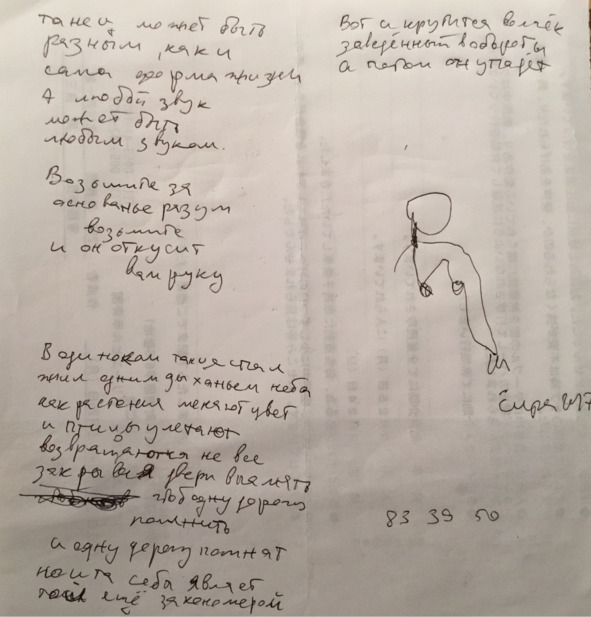 танец может быть
разным, как и
сама форма жизни
А любой звук
может быть
любым звуком.
Возьмите за
основанье разум
возьмите
и он откусит
вам руку
В одиноком
жил одним дыханьем неба
как растения меняют цвет
и птицы улетают
возвращаются не все
закрывая двери в память
чтоб одну дорогу
помнить
и одну дорогу помнят
но и та себя являет
ещё закономерой
Вот и крутится волчёк
заведённый в обороты
а потом он упадёт
83 39 50